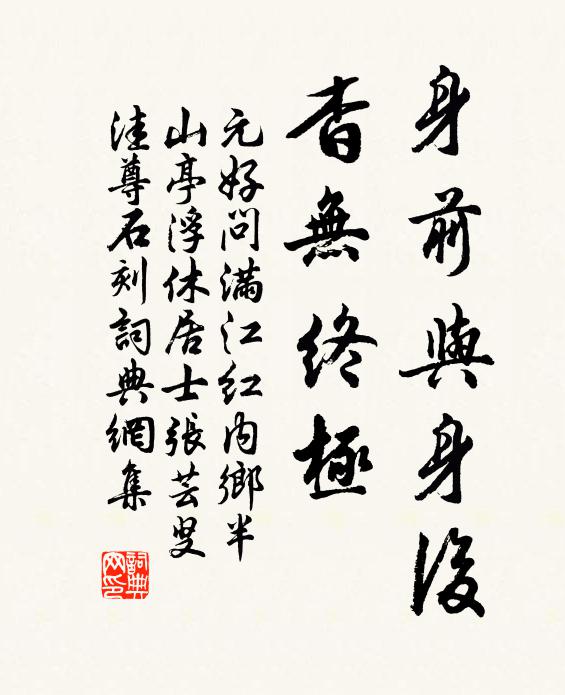 身前與身後
杳無終極
元好問滿江紅內鄉半
山亭浮休居士張芸叟
洼尊石刻詞典網集
詞典
网印